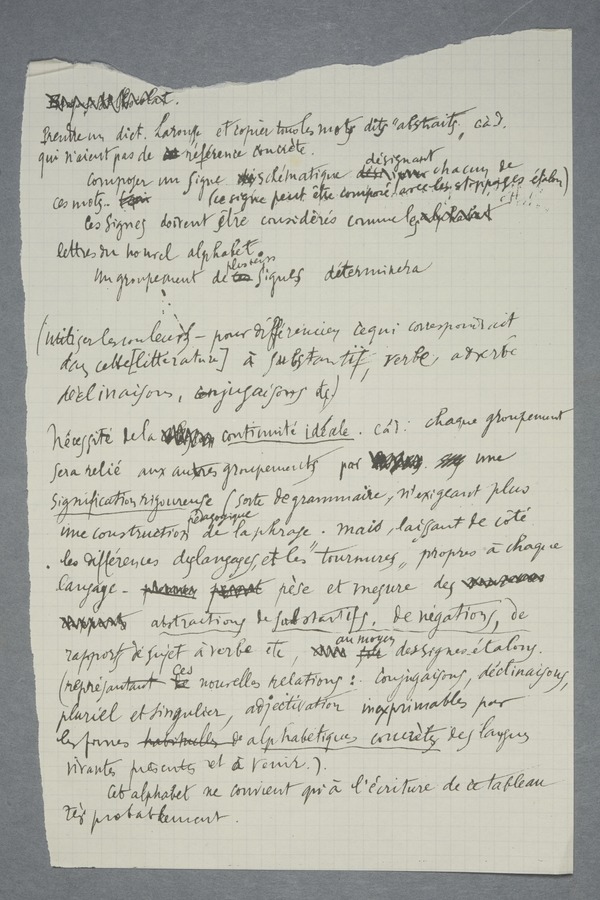 Prendre un dict. Larousse et copier tous les mots dits "abstraits", càd.
qui n'aient pas de référence concrète.
Composer un signe schématique désignant chacun de
ces mots. (ce signe peut être composé avec les stoppages étalon)
Ces signes doivent être considérés comme les
lettres du nouvel alphabet.
Un groupement de plusieurs signes déterminera
(utiliser les couleurs – pour différencier ce qui correspondrait
dans cette [littérature] à substantif, verbe, adverbe
déclinaisons, conjugaisons etc)
Nécessité de la continuité idéale. càd: chaque groupement
sera relié aux autres groupements par une
signification rigoureuse (sorte de grammaire, n'exigeant plus
une construction pédagogique de la phrase. Mais, laissant de côté
les différences des langages, et les "tournures" propres à chaque
langage – pèse et mesure des
abstractions de substantifs, de négations, de
rapports de sujet à verbe etc, au moyen des signes étalons.
(représentant ces nouvelles relations: conjugaisons, déclinaisons,
pluriel et singulier, adjectivation inexprimables par
les formes habituelles alphabétiques concrètes des langues
vivantes présents et à venir.).
Cet alphabet ne convient qu'à l'écriture de ce tableau
très probablement.